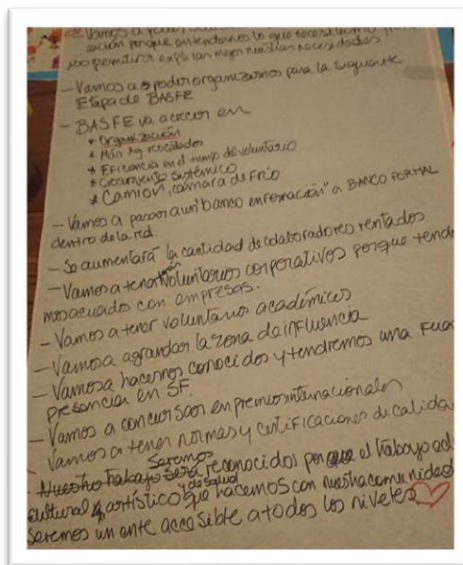 Vamos a poder
cación porque entendamos lo que necesitamos
nos permitirá explicar mejor nuestras necesidades
- Vamos a poder organizarnos para la siguiente
Etapa de BASFE
- BASFE va a crecer en
* Organización
* Más Kg rescatados
* Eficiencia en el tiempo del voluntario
* Crecimiento sistémico
* Camión, cámara de frío
- Vamos a pasar a un "banco en formación" a BANCO FORMAL
dentro de la red.
- Se aumentará la cantidad de colaboradores rentados
- Vamos a tener voluntarios corporativos porque tend
mos acuerdos con empresas.
- Vamos a tener voluntario académico
- Vamos a agrandar la zona de influencia
- Vamos a hacernos conocidos y tendremos una Fuer
presencia en SF.
- Vamos a concursar en premios internacionales
- Vamos a tener normas y certificaciones de calida
Seremos
- Nuestro trabajo será reconocidos por que el trabajo ed
y de salud
cultural, artístico que hacemos con nuestra comunidad
Seremos un ente accesible a todos los niveles